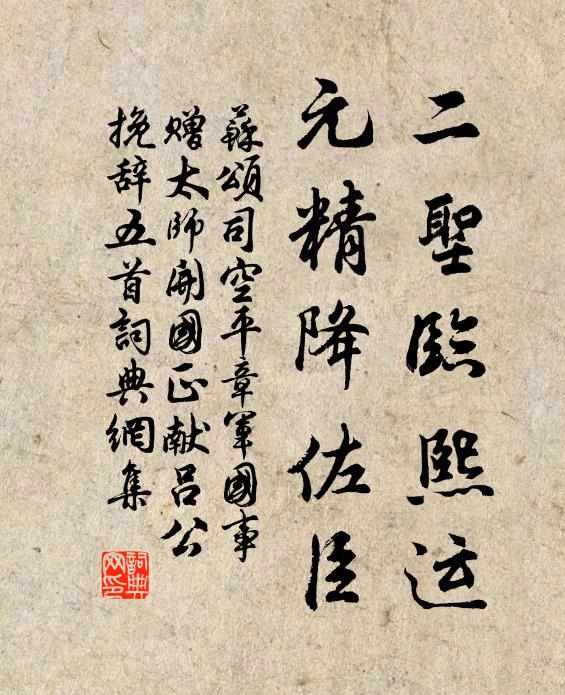 二聖臨熙运
元精降佐臣
蘇頌司空平章軍國事
贈太師開國正献吕公
挽辞五首詞典網集
詞典网印